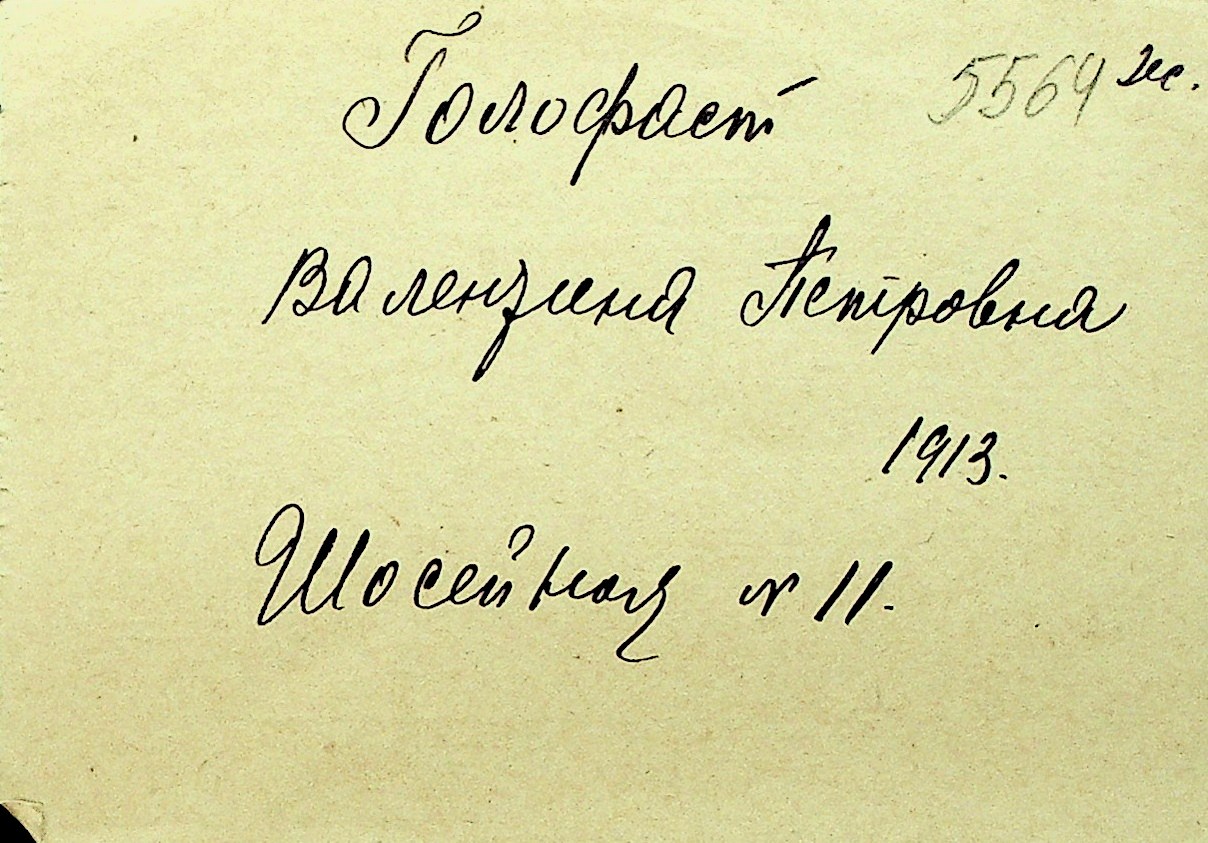 Голофаст 5564
Валентина Петровна
1913.
Шосейная № 11.